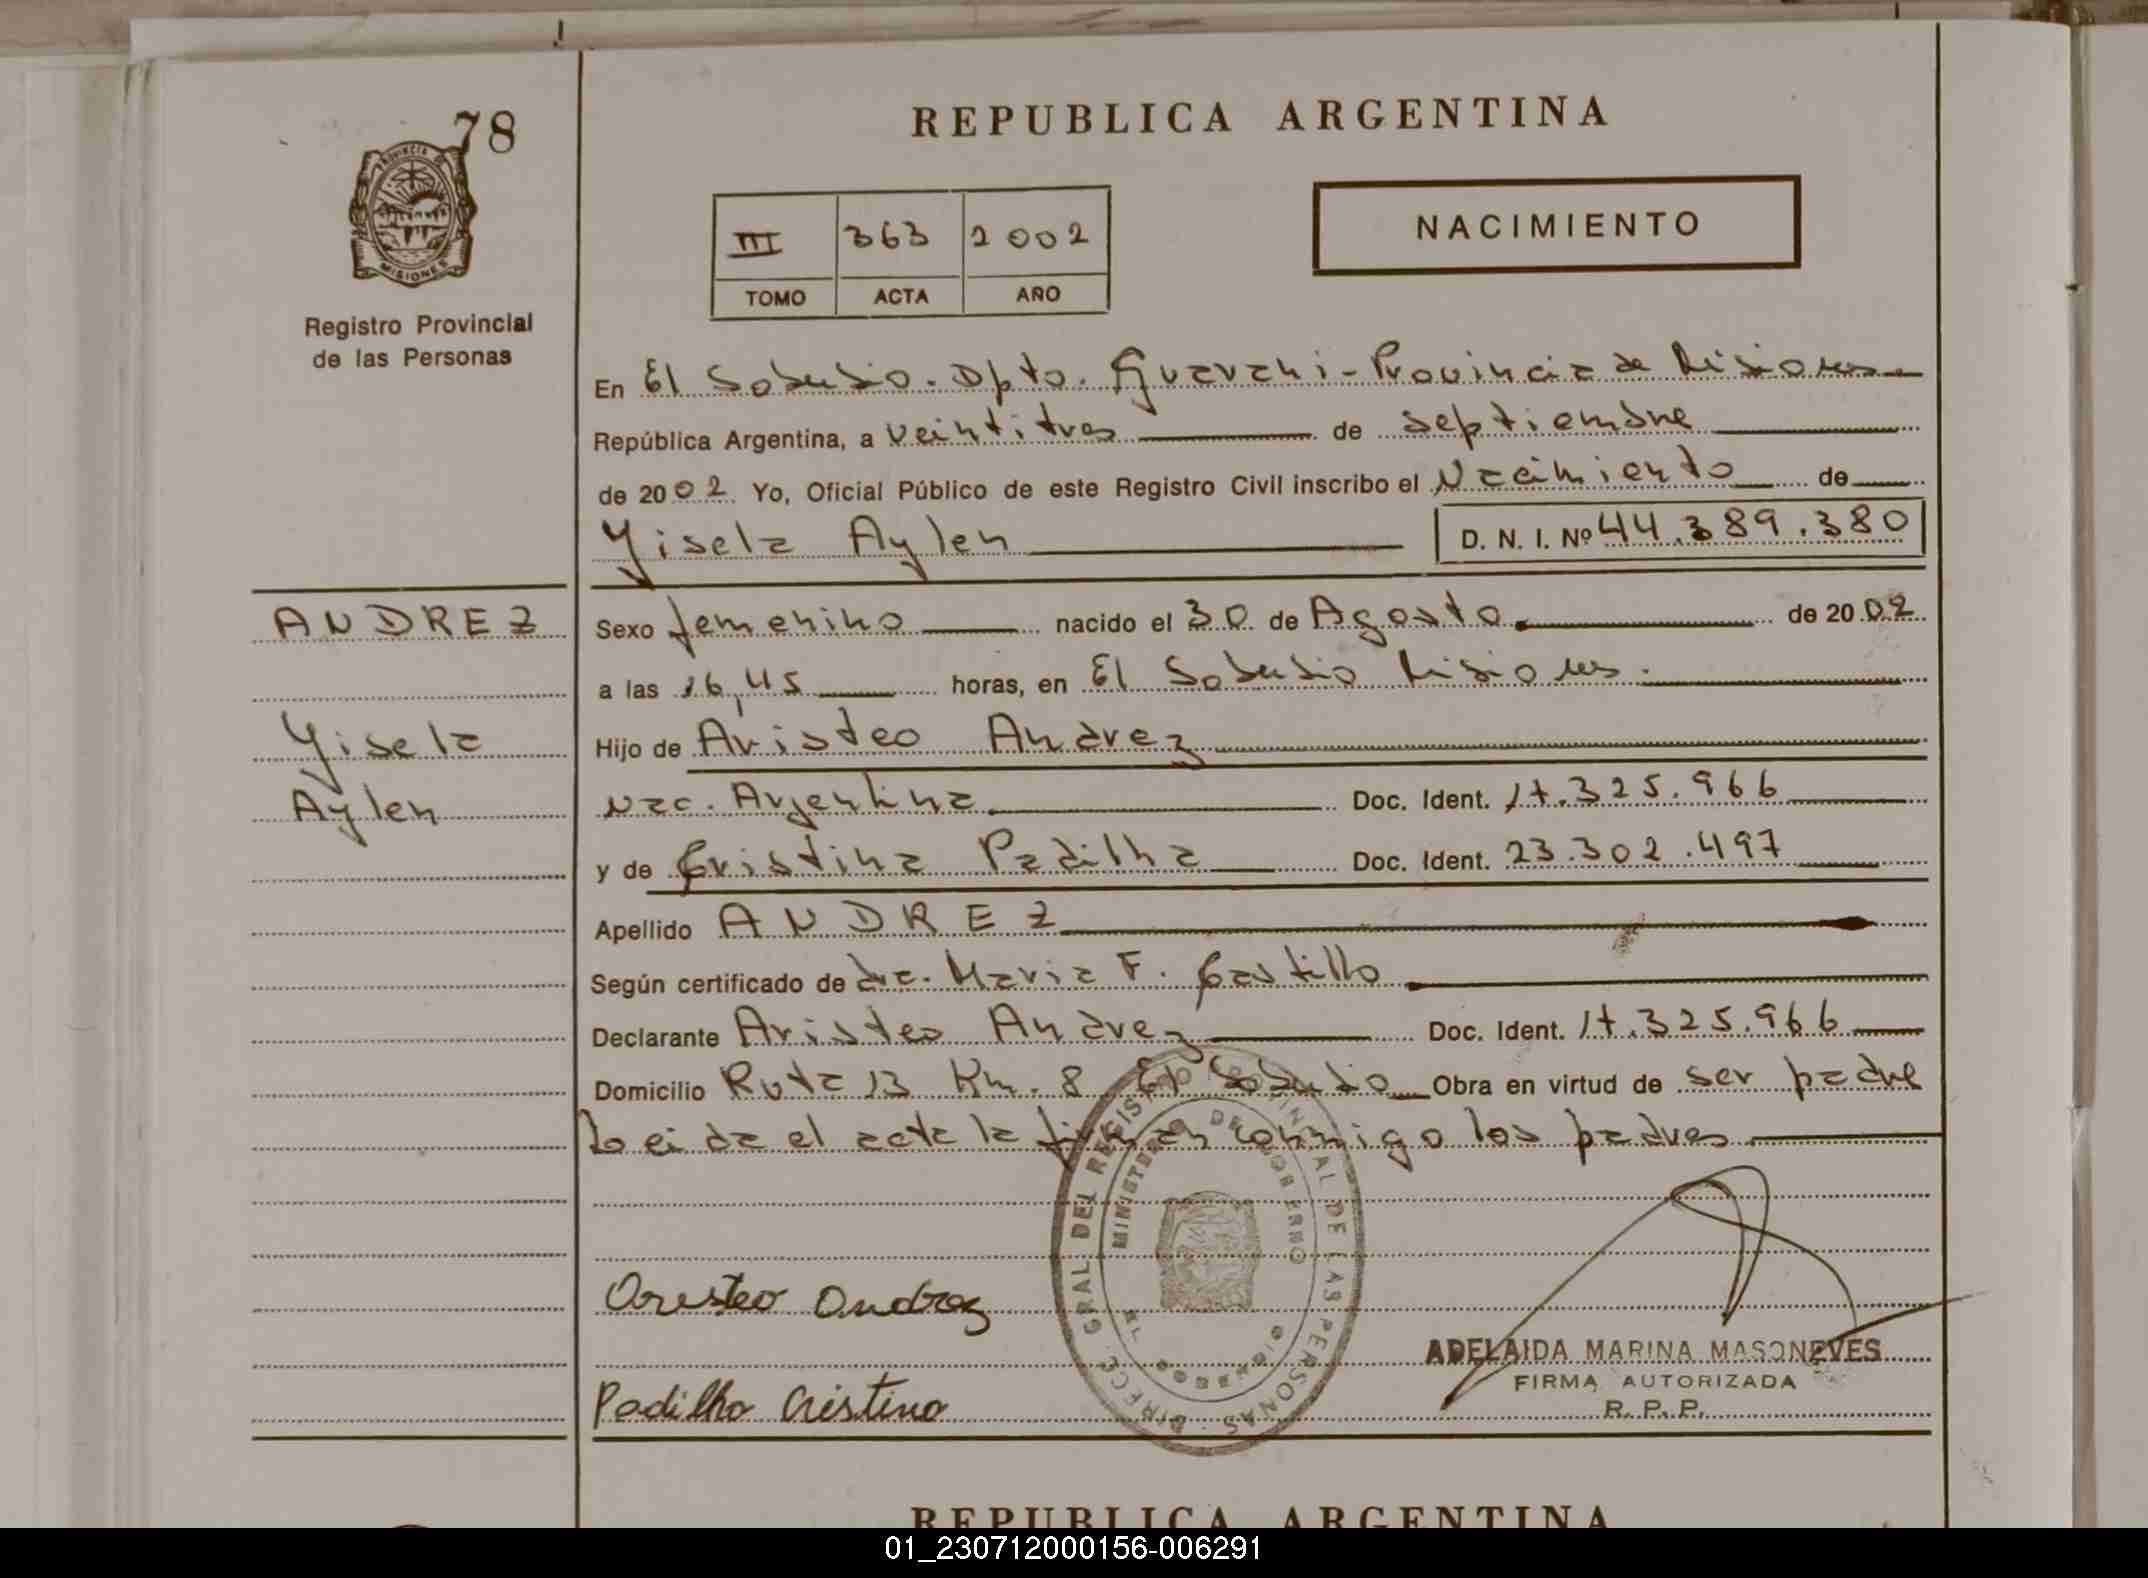 78
REPUBLICA ARGENTINA
PROVINCIA DE
MISIONES
Registro Provincial
de las Personas
III 363 2002
TOMO ACTA AÑO
NACIMIENTO
En El Soberbio. Dpto. Guarani - Provincia de Misiones
República Argentina, a veintitres de septiembre
de 2002 Yo, Oficial Público de este Registro Civil inscribo el Nacimiento de
Yisela Aylen D. N. I. Nº 44.389.380
ANDREZ
Yisela
Aylen
Sexo femenino nacido el 30 de Agosto de 2002
a las 16,45 horas, en El Soberbio Misiones.
Hijo de Aristeo Andrez
Nac. Argentina Doc. Ident. 17.325.966
y de Cristina Padilha Doc. Ident. 23.302.497
Apellido ANDREZ
Según certificado de dra. Maria F. Castillo
Declarante Aristeo Andrez Doc. Ident. 17.325.966
Domicilio Ruta 13 Km. 8 El Soberbio Obra en virtud de ser padre
Leida el acta la firman conmigo los padres
DIRECC. GRAL. DEL REGIST PROVINCIAL DE LAS PERSONAS
MINISTERIO DE GOBIERNO
EL SOBERBIO
Aristeo Andrez
Padilha Cristina
ADELAIDA MARINA MASONEVES
FIRMA AUTORIZADA
R. P. P.
REPUBLICA ARGENTINA
01_230712000156-006291